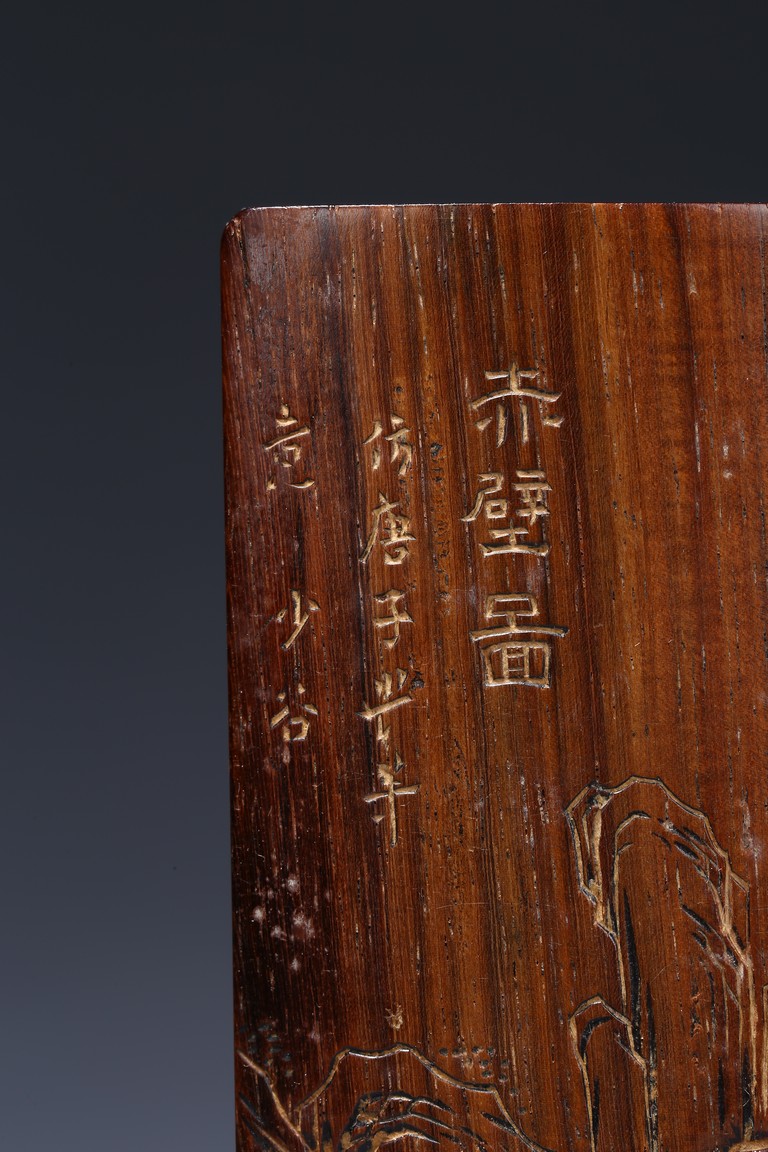 赤壁圖
仿唐子筆
意 少谷